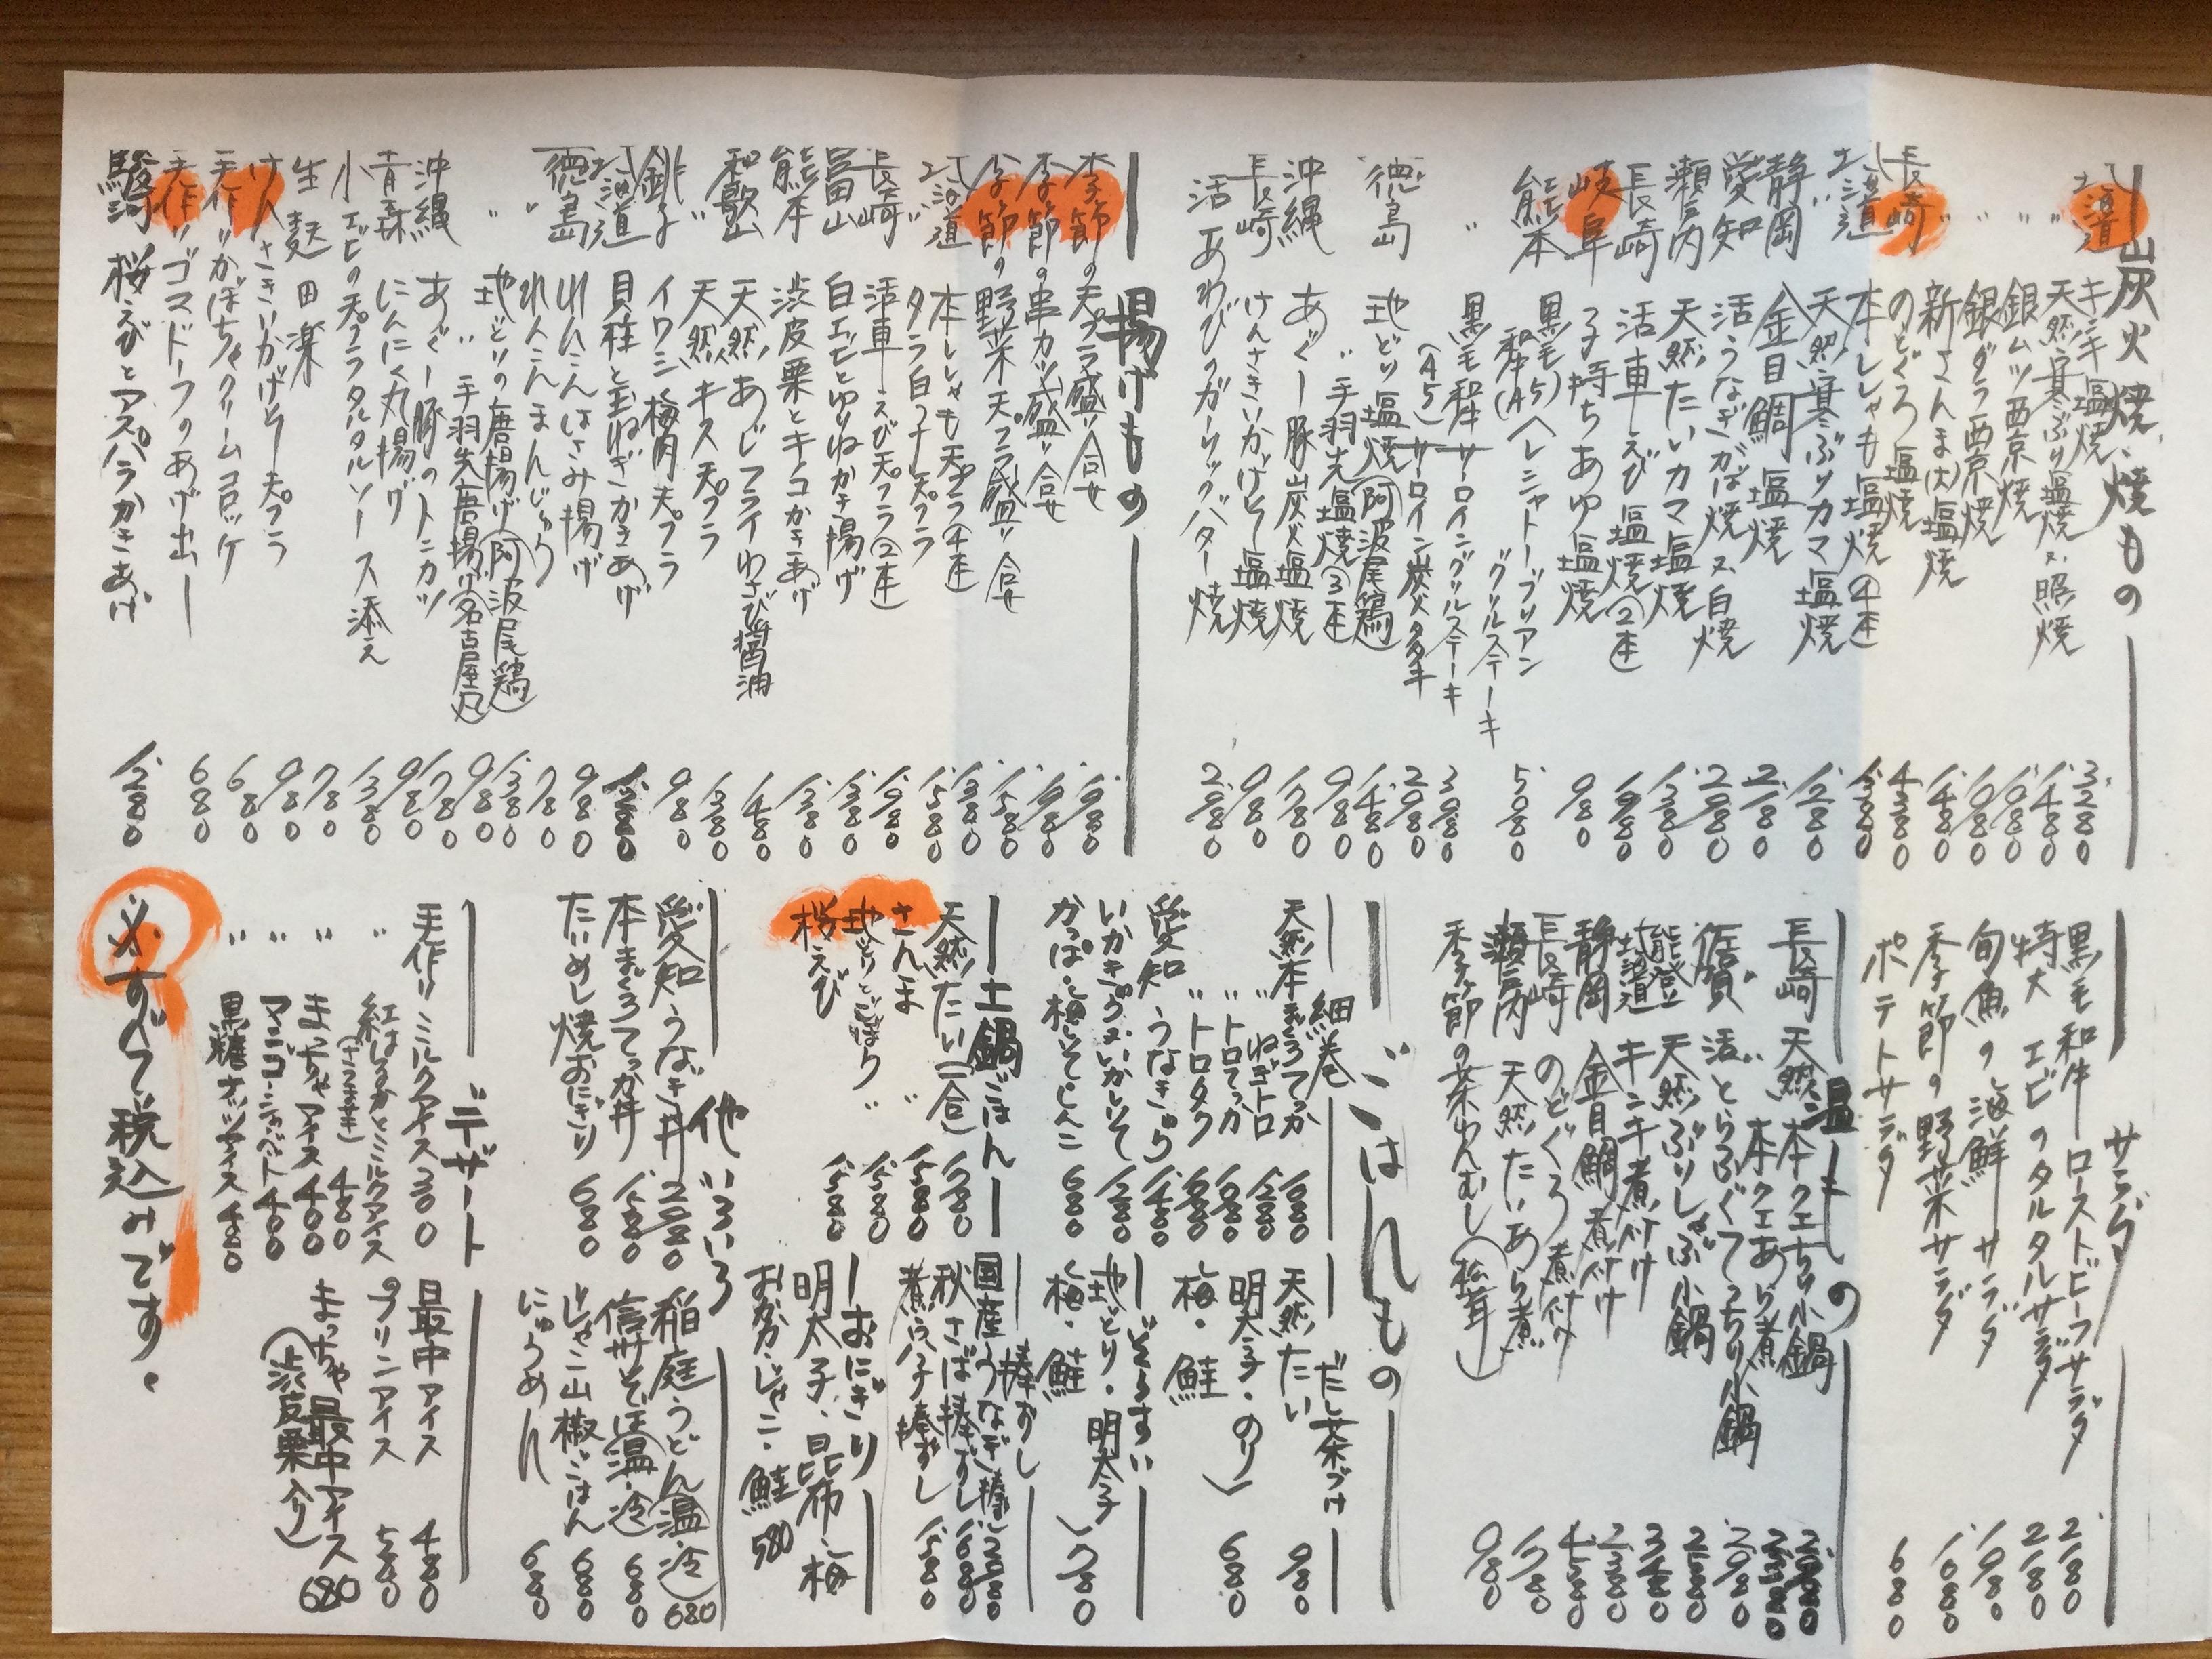 炭火焼、焼もの
北海道 キンキ塩焼 3280
〃 天然寒ぶり塩焼又照焼 1480
〃 銀ムツ西京焼 1680
〃 銀ダラ西京焼 1980
新さんま(大)塩焼 1480
長崎 のどぐろ塩焼 4380
北海道 本ししゃも塩焼④本 1380
〃 天然寒ぶりカマ塩焼 1280
静岡 金目鯛塩焼 2180
愛知 活うなぎかば焼又白焼 2980
瀬戸内 天然たいカマ塩焼 1380
長崎 活車えび塩焼②本 1980
岐阜 子持ちあゆ塩焼 980
熊本 黒毛和牛(A5)ヘレシャトーブリアン
〃グリルステーキ 5080
〃 黒毛和牛サーロイングリルステーキ 3980
(A5)サーロイン炭火タタキ 2980
徳島 地どり塩焼(阿波尾鶏) 1480
〃 手羽先塩焼③本 980
沖縄 あぐー豚炭火塩焼 1780
長崎 けんさきいかげそ塩焼 980
活あわびのガーリックバター焼 2980
揚げもの
季節の天プラ盛り合せ 1980
季節の串カツ盛り合せ 1980
季節の野菜天プラ盛り合せ 1580
北海道 本ししゃも天プラ④本 1380
〃 タラ白子天プラ 1580
長崎 活車えび天プラ②本 1980
富山 白エビとゆりねかき揚げ 1380
熊本 渋皮栗とキコかきあげ 1380
和歌山 天然あじフライわさび醤油 1480
〃 天然キス天プラ 1380
銚子 イワシ梅肉天プラ 980
北海道 貝柱と玉ねぎかきあげ 1280
徳島 れんこんはさみ揚げ 980
〃 れんこんまんじゅう 780
〃 地どりの唐揚げ(阿波尾鶏) 1380
〃 手羽先唐揚げ(名古屋風) 980
沖縄 あぐー豚のトンカツ 1780
青森 にんにく丸揚げ 980
小エビの天プラタルタルソース添え 1380
生麩田楽 780
けんさきいかげそ天プラ 980
手作りかぼちゃクリームコロッケ 680
手作りゴマドーフのあげ出し 680
駿河 桜えびとアスパラかきあげ 1280
サラダ
黒毛和牛ローストビーフサラダ 2180
特大エビのタルタルサラダ 2180
旬魚の海鮮サラダ 1980
季節の野菜サラダ 1080
ポテトサラダ 680
温もの
長崎 天然本クエちり小鍋
本クエあら煮
佐賀 活とらふぐてっちり小鍋 2980
天然ぶりしゃぶ小鍋 2580
能登
北海道 キンキ煮付け 3580
静岡 金目鯛煮付け 2380
長崎 のどぐろ煮付け 4580
瀬戸内 天然たいあら煮 1780
季節の茶わんむし(松茸) 980
ごはんもの
細巻
天然本まぐろてっか 1680
〃 ねぎトロ 1280
〃 トロてっか 1680
〃 トロタク 1680
愛知 うなきゅう 1480
いかきゅう又いかしそ 1280
かっぱ・梅しそ・しんこ 680
だし茶づけ
天然たい 980
明太子・のり
梅・鮭 680
ぞうすい
地とり・明太子
梅・鮭 780
土鍋ごはん
天然たい(一合) 1780
さんま 〃 1580
地とりとごぼう 〃 1580
桜えび 〃 1580
棒ずし
国産うなぎ棒ずし 2980
秋さば棒ずし 1680
煮穴子棒ずし 1580
おにぎり
明太子、昆布・梅
おかか・じゃこ・鮭 580
他いろいろ
愛知 うなぎ丼 2980
本まぐろてっか丼 1580
たいめし焼おにぎり 680
稲庭うどん(温・冷) 680
信州そば(温・冷) 680
じゃこ山椒ごはん 680
にゅうめん 680
デザート
手作り ミルクアイス 300
〃 紅はるかとミルクアイス
(さつま芋) 480
〃 まっちゃアイス 400
〃 マンゴーシャーベット 400
〃 黒糖ナッツアイス 480
最中アイス 480
プリンアイス 580
まっちゃ最中アイス 680
(渋皮栗入り)
※すべて税込みです。